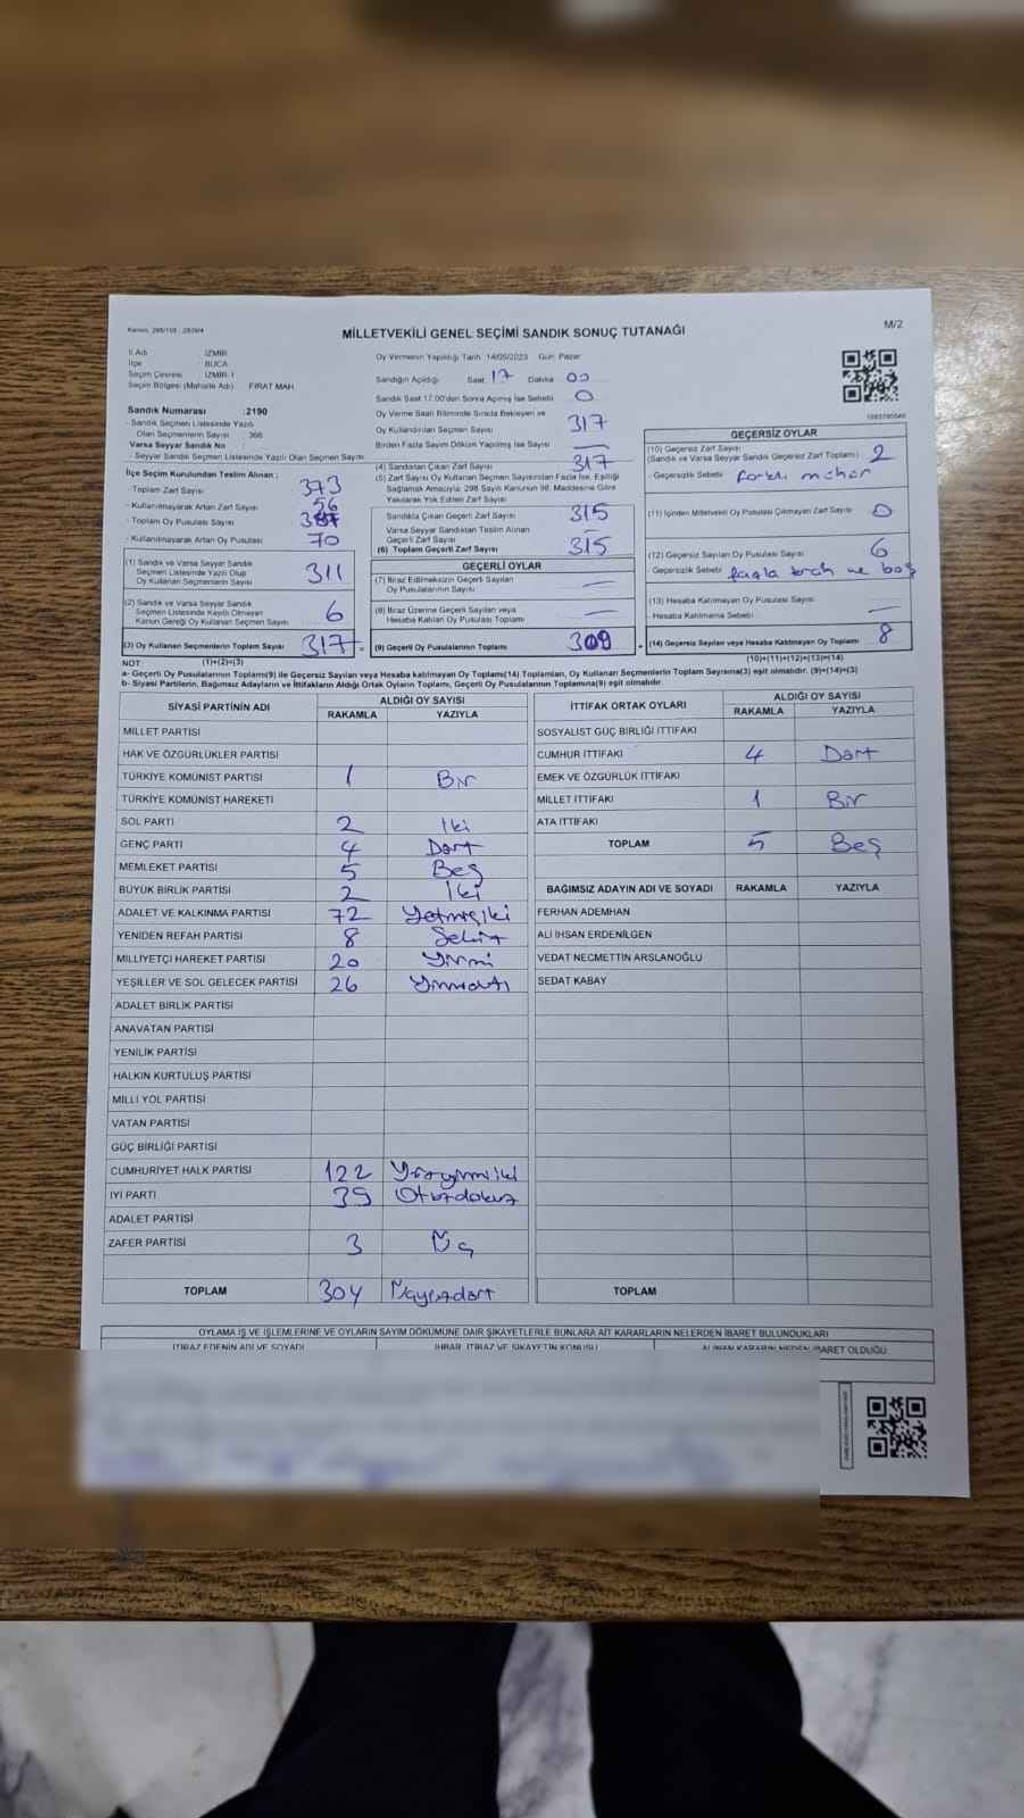 MİLLETVEKİLİ GENEL SEÇİMİ SANDIK SONUÇ TUTANAĞI
M/2
İl Adı İZMİR
İlçe BUCA
Seçim Çevresi İZMİR-1
Seçim Bölgesi (Mahalle Adı) FIRAT MAH
Sandık Numarası :2190
- Sandık Seçmen Listesinde Yazılı
Olan Seçmenlerin Sayısı : 366
Varsa Seyyar Sandık No :
- Seyyar Sandık Seçmen Listesinde Yazılı Olan Seçmen Sayısı
Oy Vermenin Yapıldığı Tarih :14/05/2023 Gün: Pazar
Sandığın Açıldığı Saat 17 Dakika 00
Sandık Saat 17:00'den Sonra Açılmış İse Sebebi 0
Oy Verme Saati Bitiminde Sırada Bekleyen ve
Oy Kullandırılan Seçmen Sayısı 317
Birden Fazla Sayım Döküm Yapılmış İse Sayısı —
İlçe Seçim Kurulundan Teslim Alınan :
- Toplam Zarf Sayısı 373
- Kullanılmayarak Artan Zarf Sayısı 56
- Toplam Oy Pusulası Sayısı
- Kullanılmayarak Artan Oy Pusulası 70
(1) Sandık ve Varsa Seyyar Sandık
Seçmen Listesinde Yazılı Olup
Oy Kullanan Seçmenlerin Sayısı 311
(2) Sandık ve Varsa Seyyar Sandık
Seçmen Listesinde Kayıtlı Olmayan
Kanun Gereği Oy Kullanan Seçmen Sayısı 6
(3) Oy Kullanan Seçmenlerin Toplam Sayısı 317
(4) Sandıktan Çıkan Zarf Sayısı 317
(5) Zarf Sayısı Oy Kullanan Seçmen Sayısından Fazla İse, Eşitliği
Sağlamak Amacıyla; 298 Sayılı Kanunun 98. Maddesine Göre
Yakılarak Yok Edilen Zarf Sayısı
Sandıkta Çıkan Geçerli Zarf Sayısı 315
Varsa Seyyar Sandıktan Teslim Alınan
Geçerli Zarf Sayısı —
(6) Toplam Geçerli Zarf Sayısı 315
GEÇERLİ OYLAR
(7) İtiraz Edilmeksizin Geçerli Sayılan
Oy Pusulalarının Sayısı —
(8) İtiraz Üzerine Geçerli Sayılan veya
Hesaba Katılan Oy Pusulası Toplamı —
(9) Geçerli Oy Pusulalarının Toplamı 309
GEÇERSİZ OYLAR
(10) Geçersiz Zarf Sayısı
(Sandık ve Varsa Seyyar Sandık Geçersiz Zarf Toplamı) 2
- Geçersizlik Sebebi farklı mühür
(11) İçinden Milletvekili Oy Pusulası Çıkmayan Zarf Sayısı 0
(12) Geçersiz Sayılan Oy Pusulası Sayısı 6
- Geçersizlik Sebebi fazla tercih ve boş
(13) Hesaba Katılmayan Oy Pusulası Sayısı —
- Hesaba Katılmama Sebebi
(14) Geçersiz Sayılan veya Hesaba Katılmayan Oy Toplamı 8
NOT (1)+(2)=(3) (10)+(11)+(12)+(13)=(14)
a- Geçerli Oy Pusulalarının Toplamı(9) ile Geçersiz Sayılan veya Hesaba katılmayan Oy Toplamı(14) Toplamları, Oy Kullanan Seçmenlerin Toplam Sayısına(3) eşit olmalıdır. (9)+(14)=(3)
b- Siyasi Partilerin, Bağımsız Adayların ve İttifakların Aldığı Ortak Oyların Toplamı, Geçerli Oy Pusulalarının Toplamına(9) eşit olmalıdır.
SİYASİ PARTİNİN ADI ALDIĞI OY SAYISI
RAKAMLA YAZIYLA
MİLLET PARTİSİ
HAK VE ÖZGÜRLÜKLER PARTİSİ
TÜRKİYE KOMÜNİST PARTİSİ 1 Bir
TÜRKİYE KOMÜNİST HAREKETİ
SOL PARTİ 2 İki
GENÇ PARTİ 4 Dört
MEMLEKET PARTİSİ 5 Beş
BÜYÜK BİRLİK PARTİSİ 2 İki
ADALET VE KALKINMA PARTİSİ 72 Yetmişiki
YENİDEN REFAH PARTİSİ 8 Sekiz
MİLLİYETÇİ HAREKET PARTİSİ 20 Yirmi
YEŞİLLER VE SOL GELECEK PARTİSİ 26 Yirmialtı
ADALET BİRLİK PARTİSİ
ANAVATAN PARTİSİ
YENİLİK PARTİSİ
HALKIN KURTULUŞ PARTİSİ
MİLLİ YOL PARTİSİ
VATAN PARTİSİ
GÜÇ BİRLİĞİ PARTİSİ
CUMHURİYET HALK PARTİSİ 122 Yüzyirmiiki
İYİ PARTİ 39 Otuzdokuz
ADALET PARTİSİ
ZAFER PARTİSİ 3 Üç
TOPLAM 304 Üçyüzdört
İTTİFAK ORTAK OYLARI ALDIĞI OY SAYISI
RAKAMLA YAZIYLA
SOSYALİST GÜÇ BİRLİĞİ İTTİFAKI
CUMHUR İTTİFAKI 4 Dört
EMEK VE ÖZGÜRLÜK İTTİFAKI
MİLLET İTTİFAKI 1 Bir
ATA İTTİFAKI
TOPLAM 5 Beş
BAĞIMSIZ ADAYIN ADI VE SOYADI RAKAMLA YAZIYLA
FERHAN ADEMHAN
ALİ İHSAN ERDENİLGEN
VEDAT NECMETTİN ARSLANOĞLU
SEDAT KABAY
TOPLAM
OYLAMA İŞ VE İŞLEMLERİNE VE OYLARIN SAYIM DÖKÜMÜNE DAİR ŞİKAYETLERLE BUNLARA AİT KARARLARIN NELERDEN İBARET BULUNDUKLARI
İTİRAZ EDENİN ADI VE SOYADI İHBAR, İTİRAZ VE ŞİKAYETİN KONUSU ALINAN KARARIN NEDEN İBARET OLDUĞU